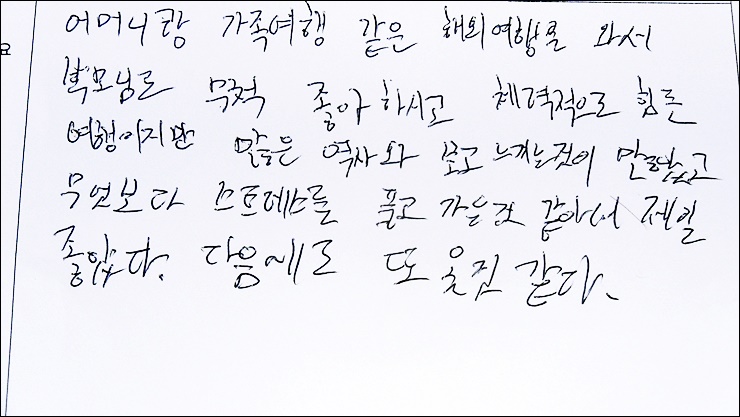 어머니랑 가족여행 같은 해외여행을 와서
부모님도 무척 좋아하시고 체력적으로 힘든
여행이지만 많은 역사와 보고 느끼는것이 많았고
무엇보다 스트레스를 풀고 가는것 같아서 제일
좋았다. 다음에도 또 올것 같다.
요